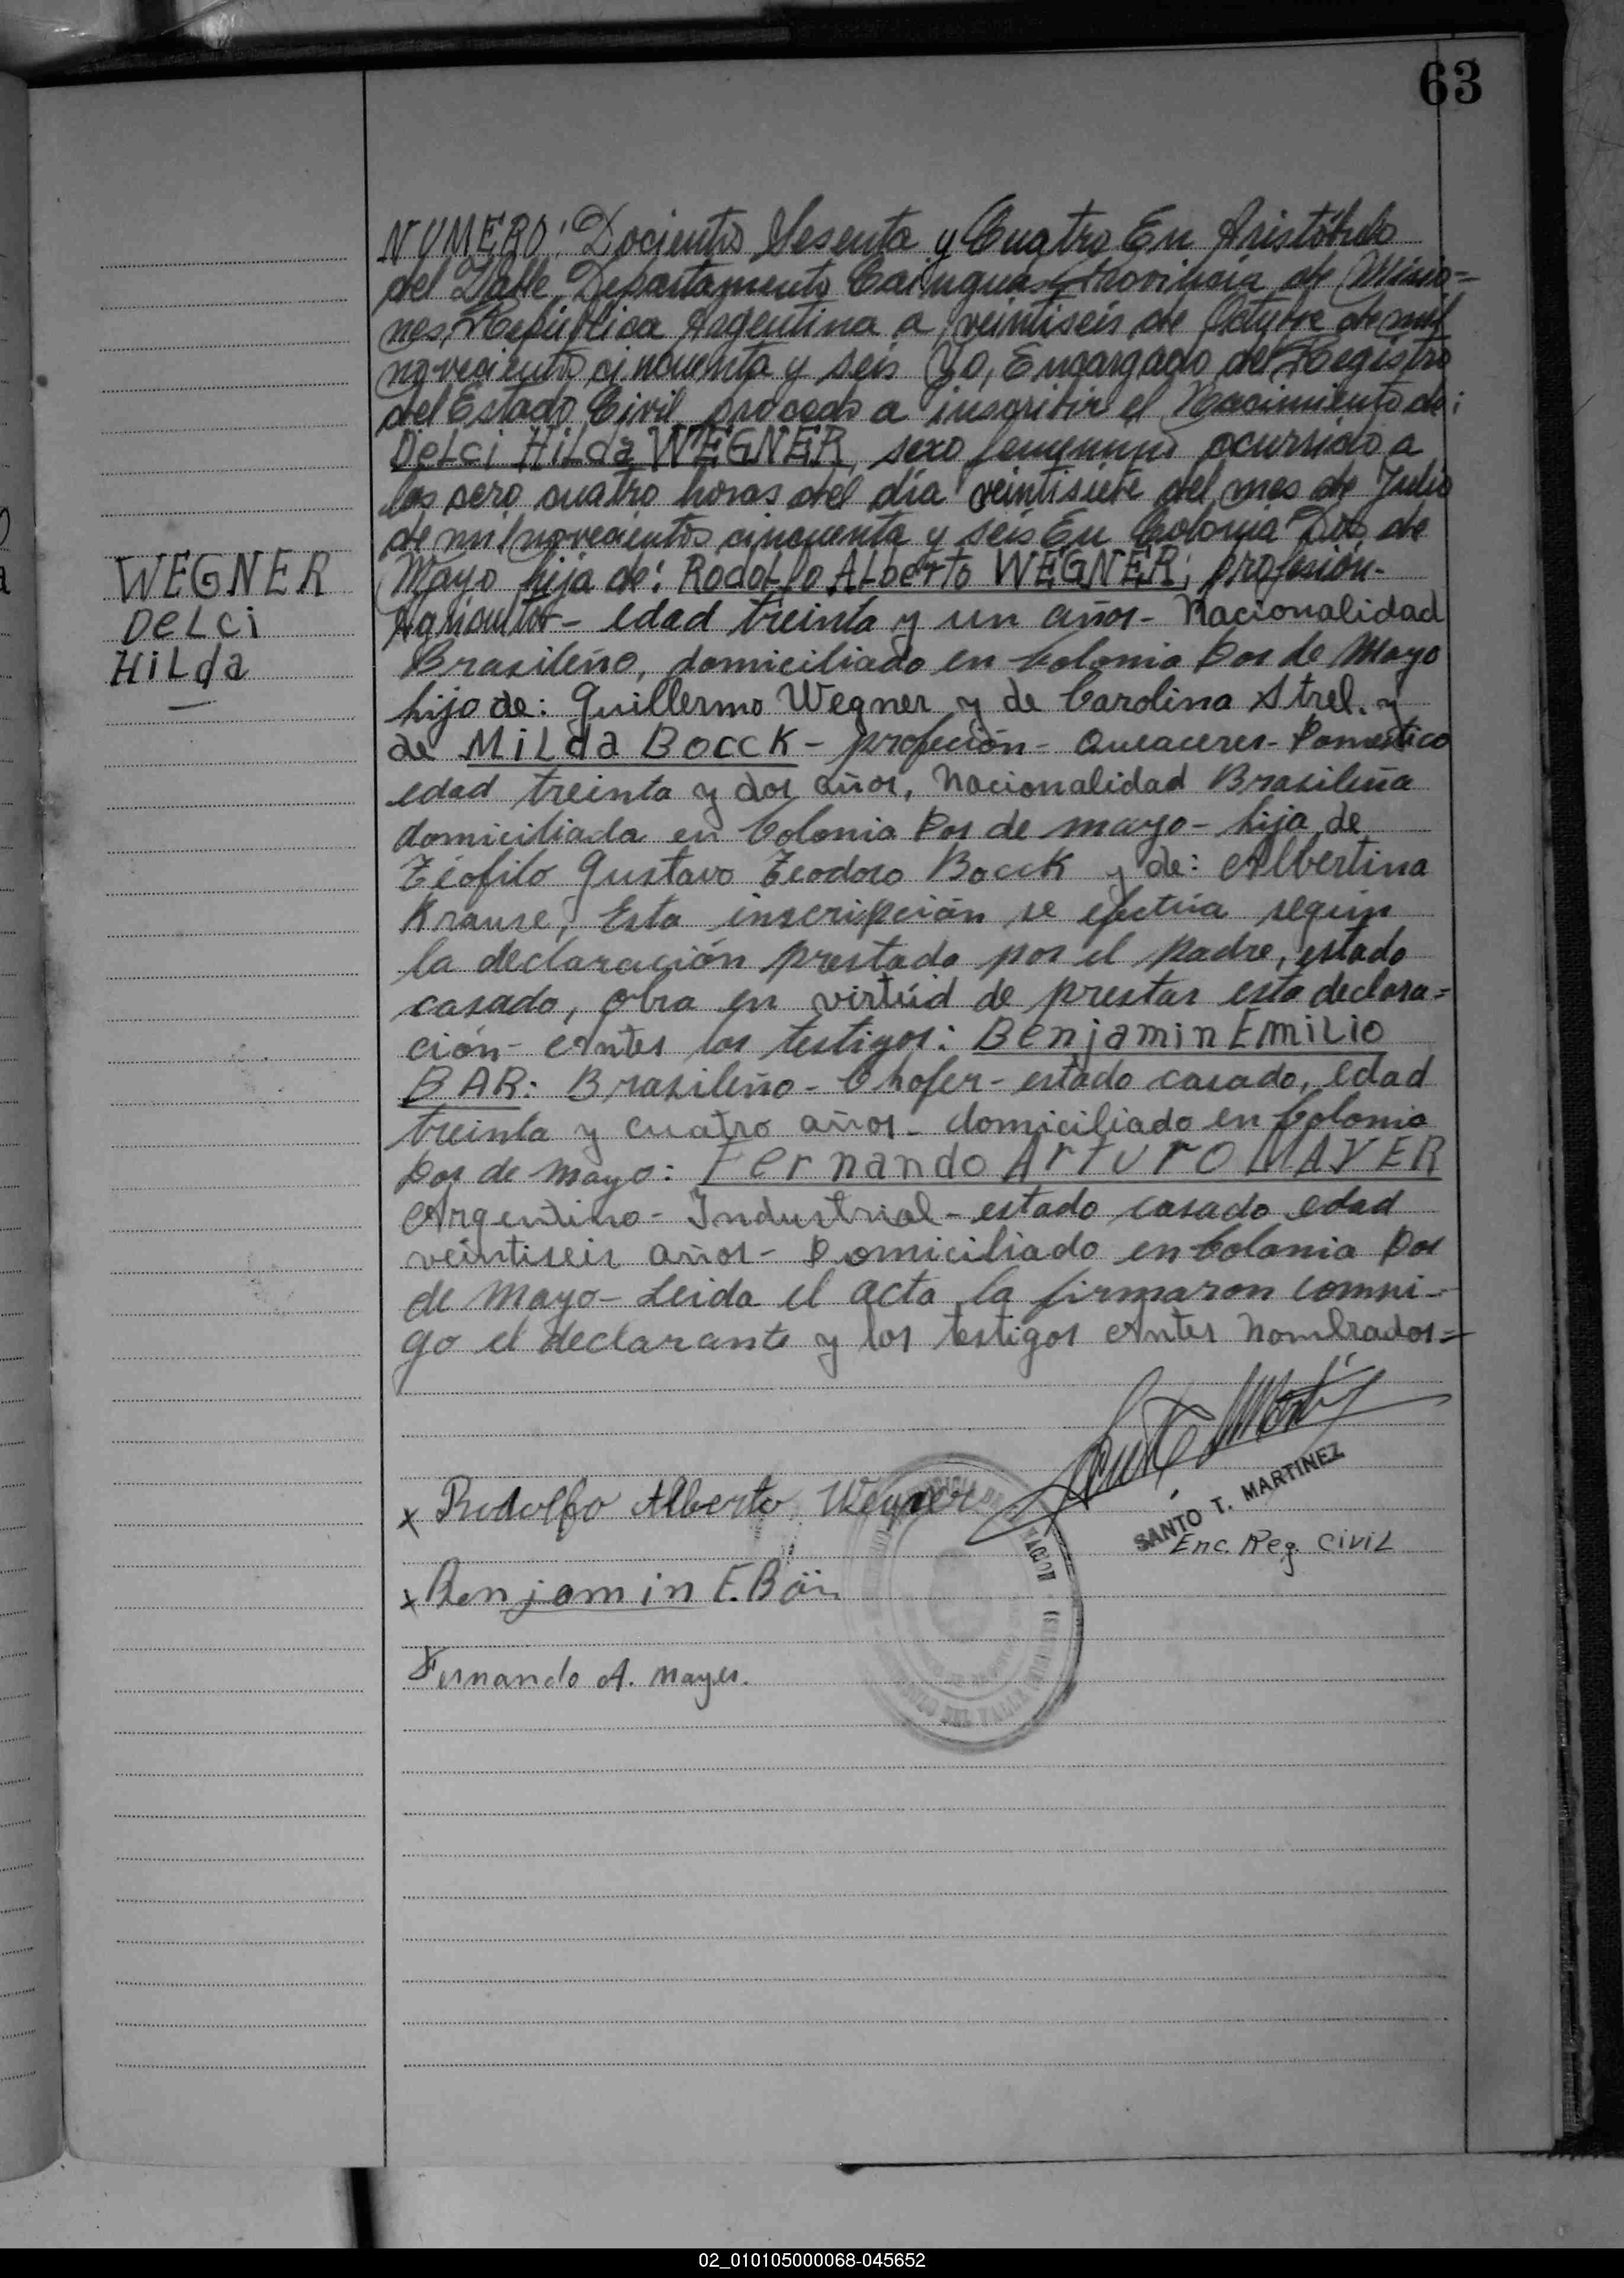 63
NUMERO: Docientos Sesenta y Cuatro En Aristóbulo
del Valle, Departamento Cainguas Provincia de Misio=
nes, República Argentina a veintiseis de Octubre de mil
novecientos cincuenta y seis Yo, Encargado del Registro
del Estado Civil procedo a inscribir el Nacimiento de:
DeLci HiLda WEGNER, sexo femenino ocurrido a
las cero cuatro horas del día veintisiete del mes de Julio
de mil novecientos cincuenta y seis En Colonia Dos de
Mayo hija de: RodoLfo ALberto WEGNER; profesión-
Agricultor- edad treinta y un años- Nacionalidad
Brasileño, domiciliado en Colonia Dos de Mayo
hijo de: Guillermo Wegner y de Carolina Strel. y
de MiLda BOCCK- profeción- Queaceres- Domestico
edad treinta y dos años, Nacionalidad Brasileña
domiciliada en Colonia Dos de mayo- hija de
Téofilo Gustavo Teodoro Bocck y de: Albertina
Krause, Esta inscripción se efectúa según
la declaración prestada por el padre, estado
casado, obra en virtúd de prestar esta declara=
ción- Antes los testigos: Benjamin EmiLio
BAR: Brasileño- Chofer- estado casado, edad
treinta y cuatro años- domiciliado en Colonia
Dos de Mayo: Fernando ArTuro MAYER
Argentino- Industrial- estado casado edad
veintiseis años- Domiciliado en Colonia Dos
de Mayo- Leida el acta la firmaron conmi-
go el declarante y los testigos Antes Nombrados=
WEGNER
DeLci
HiLda
x Rodolfo Alberto Wegner
SANTO T. MARTINEZ
Enc. Reg. CiviL
x Benjamin E. Bär
Fernando A. Mayer.
DEL VALLE
02_010105000068-045652